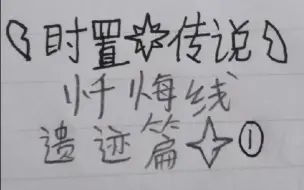 〖时置☆传说〗
忏悔线
遗迹篇✧①